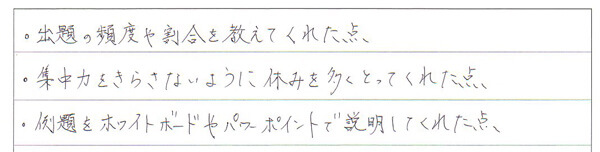 ・出題の頻度や割合を教えてくれた点、
・集中力をきらさないように休みを多くとってくれた点、
・例題をホワイトボードやパワーポイントで説明してくれた点、